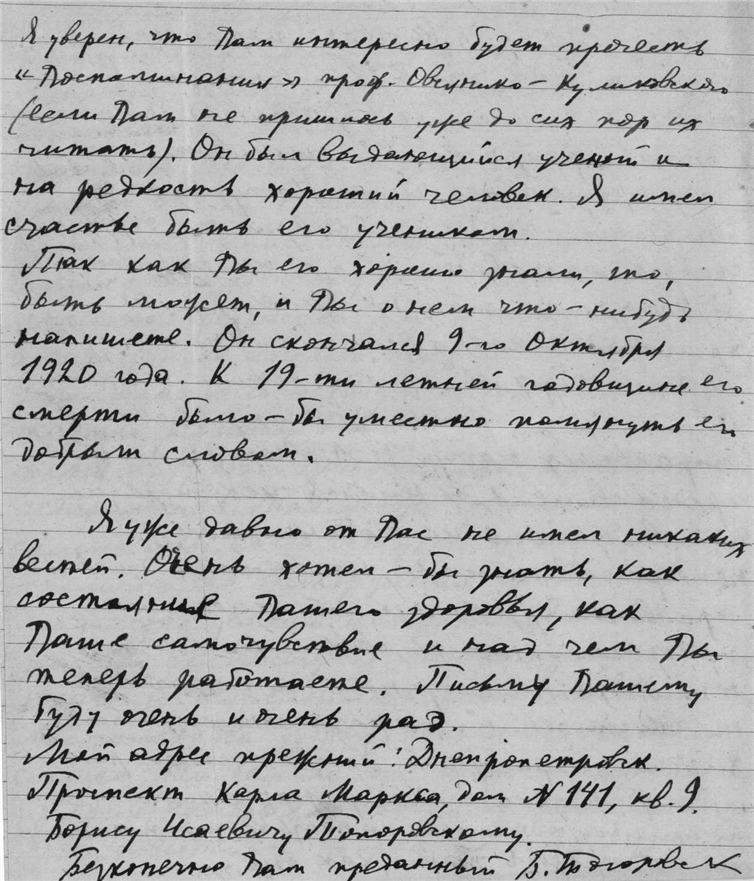 Я уверен, что Вам интересно будет прочесть
«Воспоминания» проф. Овсянико-Куликовского
(если Вам не пришлось уже до сих пор их
читать). Он был выдающийся ученый и
на редкость хороший человек. Я имел
счастье быть его учеником.
Так как Вы его хорошо знали, то,
быть может, и Вы о нем что-нибудь
напишете. Он скончался 9-го Октября
1920 года. К 19-ти летней годовщине его
смерти было-бы уместно помянуть его
добрым словом.
Я уже давно от Вас не имел никаких
вестей. Очень хотел-бы знать, как
состояние Вашего здоровья, как
Ваше самочувствие и над чем Вы
теперь работаете. Письму Вашему
буду очень и очень рад.
Мой адрес прежний: Днепропетровск.
Проспект Карла Маркса, дом № 141, кв. 9.
Борису Исаевичу Топоровскому.
Безконечно Вам преданный Б. Топоровск